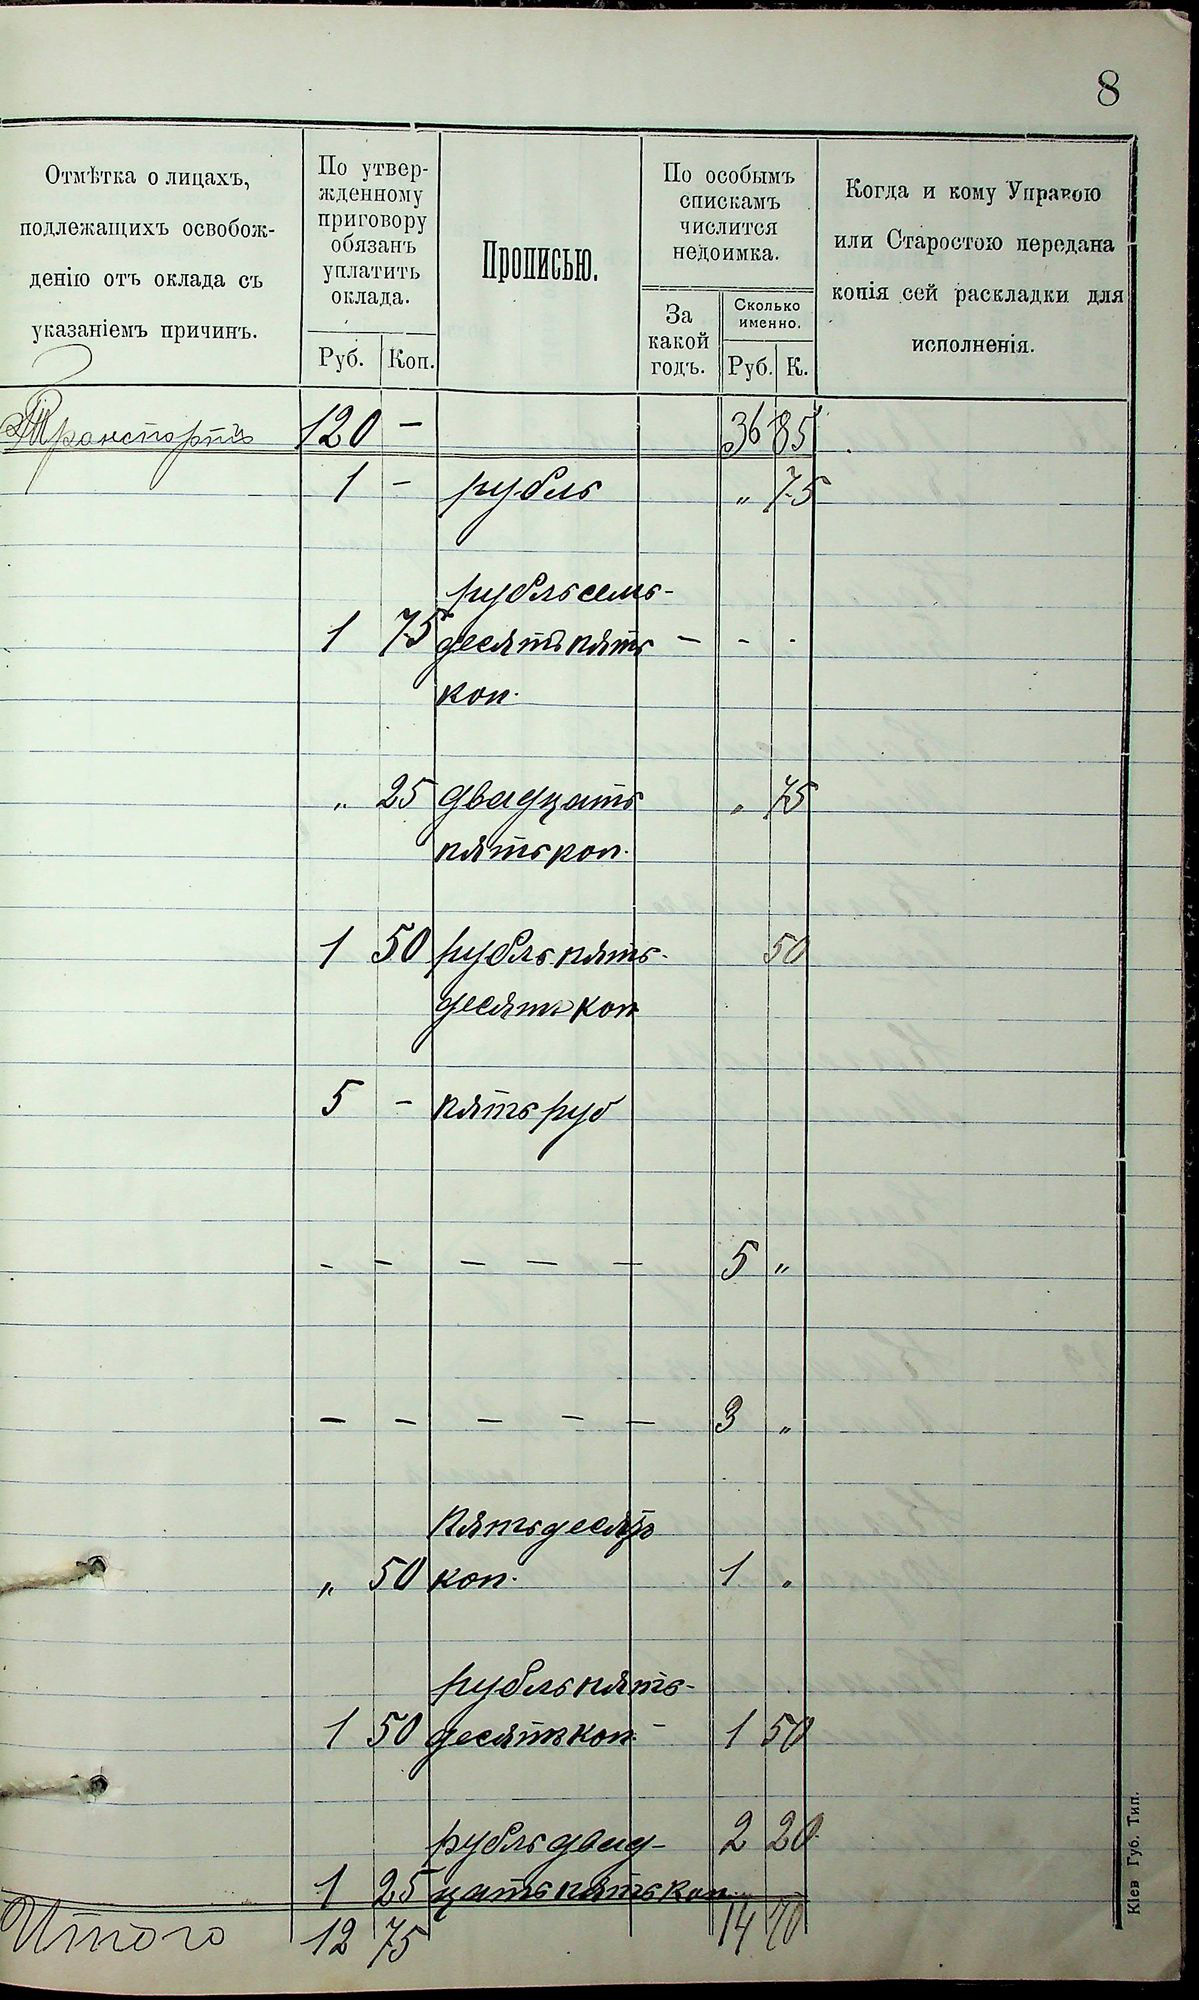 8
Отмѣтка о лицахъ,
подлежащихъ освобож-
денію отъ оклада съ
указаніемъ причинъ.
По утвер-
жденному
приговору
обязанъ
уплатить
оклада.
Руб. Коп.
Прописью.
По особымъ
спискамъ
числится
недоимка.
За
какой
годъ.
Сколько
именно.
Руб. К.
Когда и кому Управою
или Старостою передана
копія сей раскладки для
исполненія.
Транспортъ 120 — 36 85
1 - рубль „ 75
рубль семь-
1 75 десять пять - - -
коп.
„ 25 двадцать „ 75
пять коп.
1 50 рубль пять- 50
десять коп
5 - пять руб
- - - - - 5 „
- - - - - 3 „
пятьдесятъ
„ 50 коп. 1 „
рубль пять-
1 50 десять коп. - 1 50
рубль двад- 2 20
1 25 цать пять коп.
Итого 12 75 14 70
Кіев Губ. Тип.